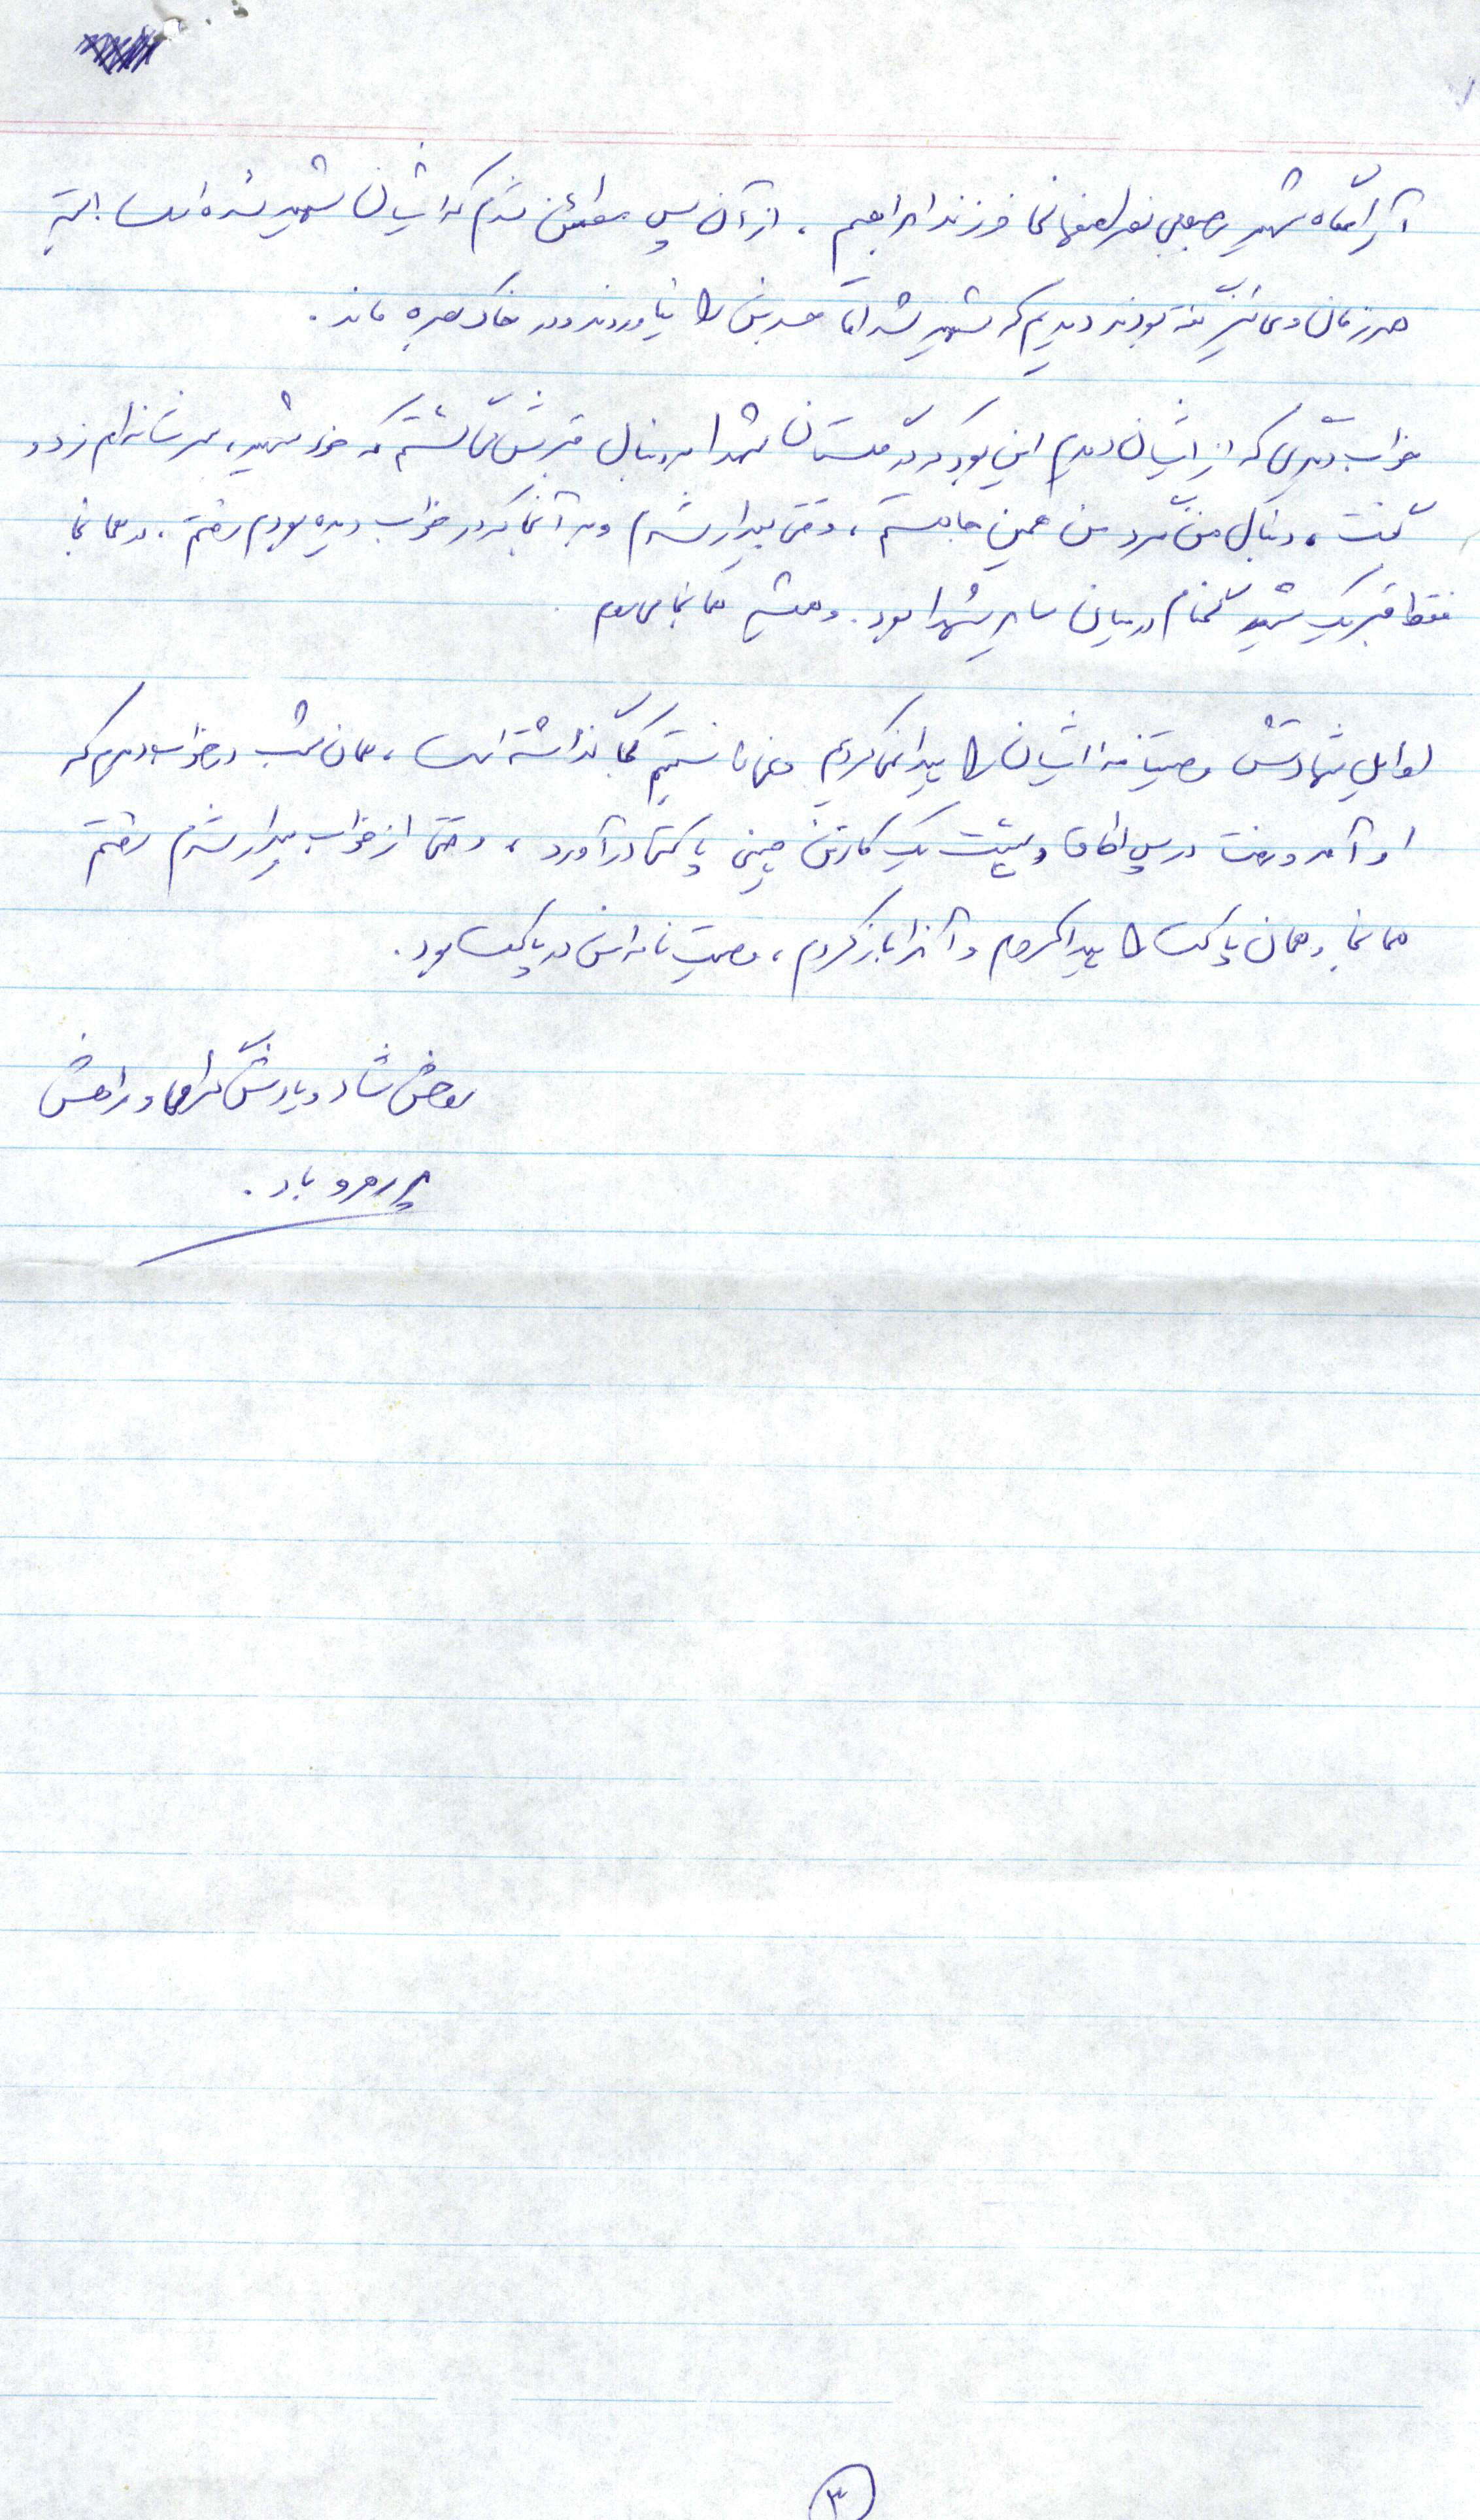 آرامگاه شهید رجبعلی نصر اصفهانی فرزند ابراهیم ، از آن پس مطمئن شدم که ایشان شهید شده است البته
همرزمان وی نیز گفته بودند دیدیم که شهید شد اما جسدش را نیاوردند و در خاک بصره ماند .
خواب دیگری که از ایشان دیدم این بود که در گلستان شهدا به دنبال قبرش می گشتم که خود شهید ، بر شانه ام زد و
گفت ، دنبال من نگرد من همین جا هستم ، وقتی بیدار شدم و به آنجا که در خواب دیده بودم رفتم . در همانجا
فقط قبر یک شهید گمنام در میان سایر شهدا بود . و همیشه همانجا می روم
اوایل شهادتش وصیتنامه ایشان را پیدا نمی کردیم و نمی دانستیم کجا گذاشته است ، همان شب در خواب دیدم که
او آمد و رفت در پس اطاق و پشت یک کارتن چینی پاکتی درآورد ، وقتی از خواب بیدار شدم رفتم
همانجا و همان پاکت را پیدا کردم و آنرا باز کردم ، وصیت نامه اش در پاکت بود .
روحش شاد و یادش گرامی و راهش
پر رهرو باد .
۳